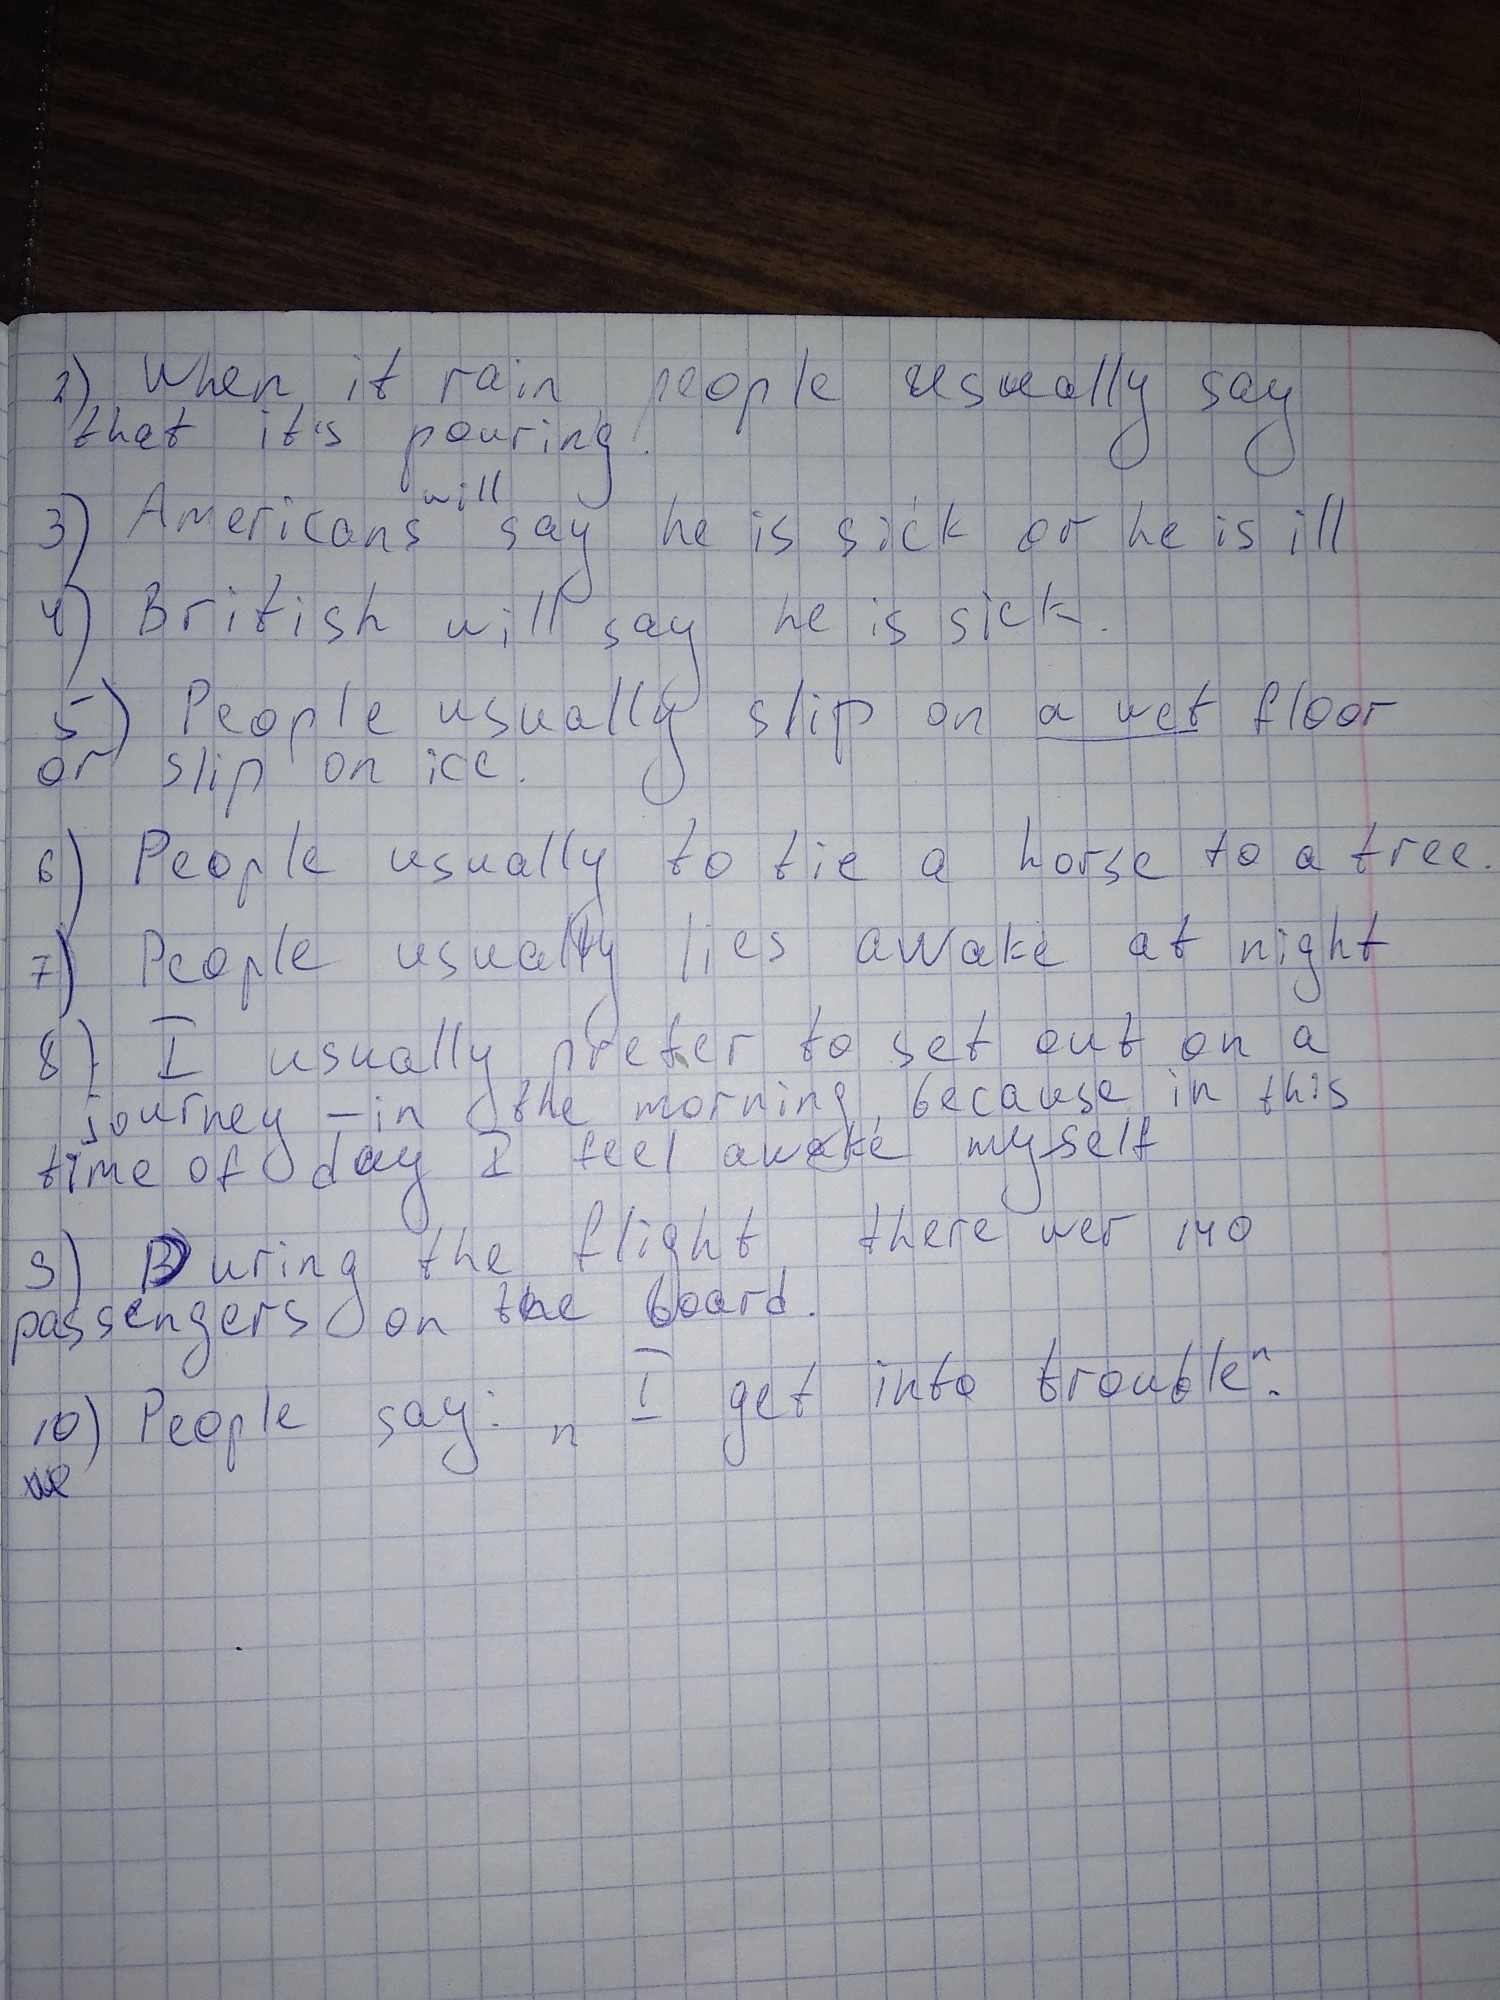 2) When it rain people usually say
that it's pouring.
will
3) Americans say he is sick or he is ill
4) British will say he is sick.
5) People usually slip on a wet floor
or slip on ice.
6) People usually to tie a horse to a tree.
7) People usually lies awake at night
8) I usually prefer to set out on a
journey – in the morning, because in this
time of day I feel awake myself
9) During the flight there wer 140
passengers on the board.
10) People say: „ I get into trouble".